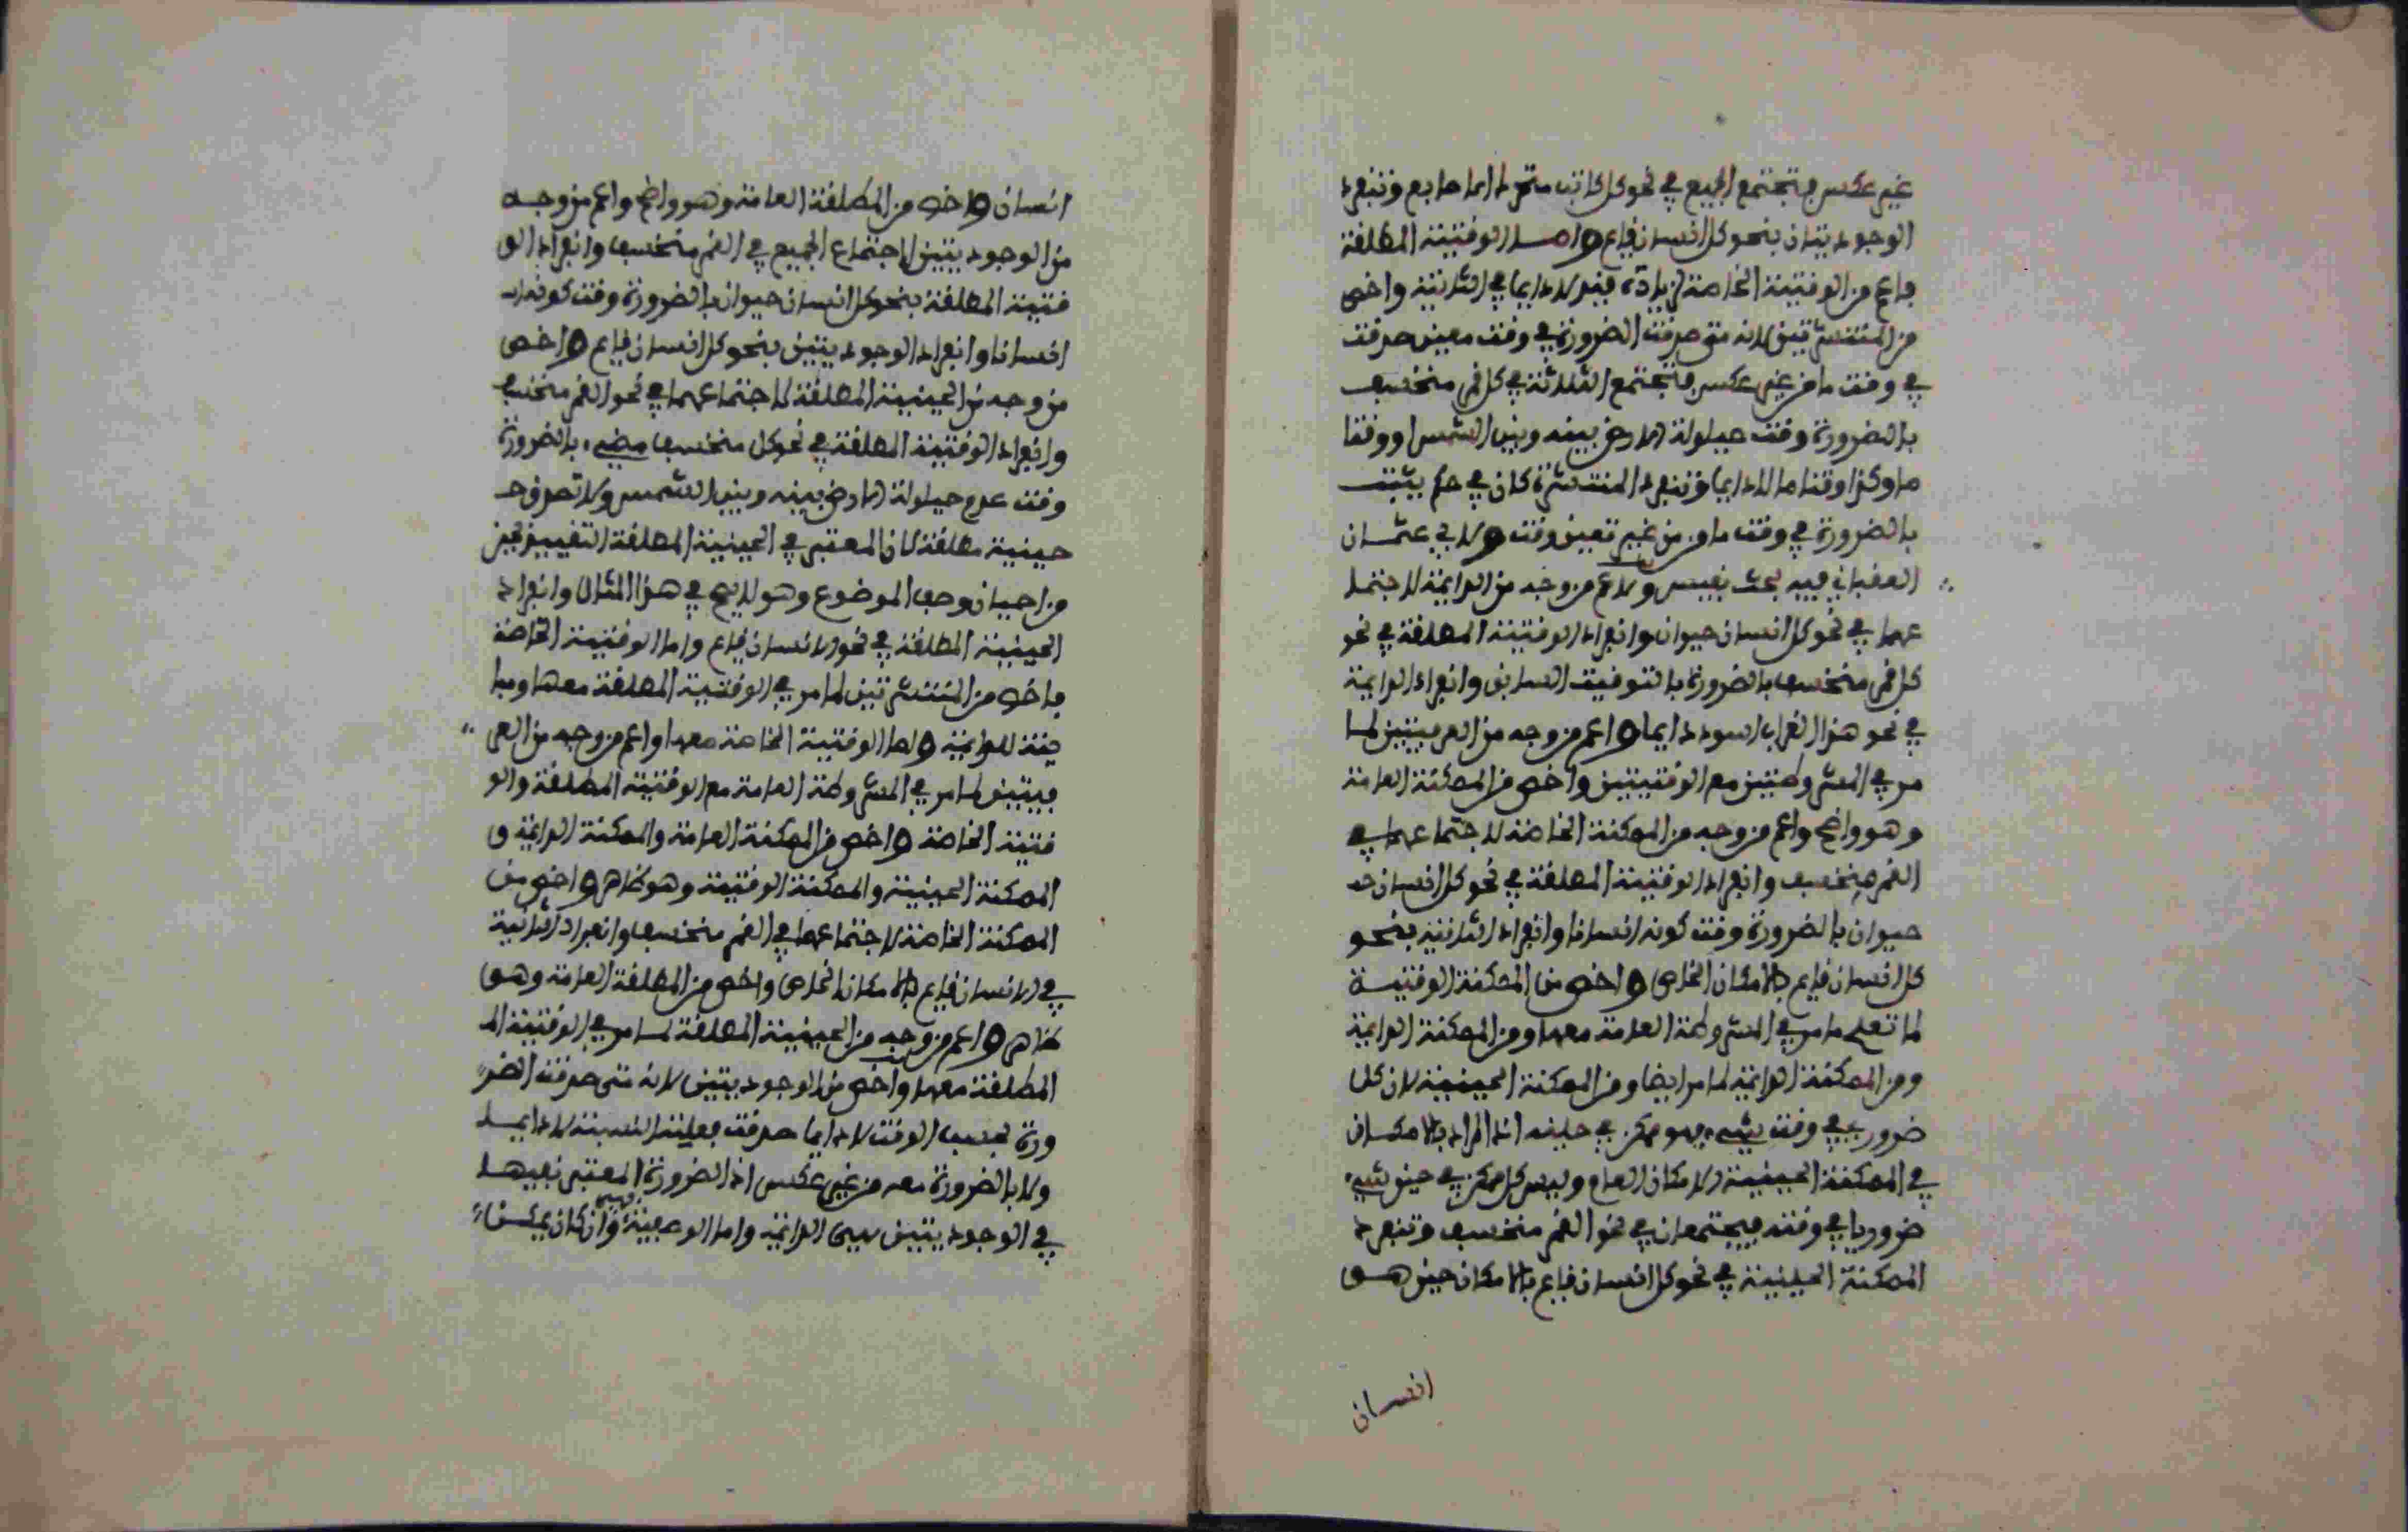 غير عكس فتجتمع الجميع في نحو كل كاتب متحرك الاصابع وتنفرد
الوجوديتان بنحو كل انسان قايم واما الوقتية المطلقة
فاعم من الوقتية الخاصة لزيادة قيد لا دايما في الثانية واخص
من المنتشرتين لانه متى صدقت الضرورة في وقت معين صدقت
في وقت ما من غير عكس فتجتمع الثلاثة في كل قمر منخسف
بالضرورة وقت حيلولة الارض بينه وبين الشمس او وقتا
ما وكذا وقتا ما لا دايما وتنفرد المنتشرة كان في حكم يثبت
بالضرورة في وقت ما من غير تعيين وقت ولابي عثمان
العقباني فيه بحث نفيس واعم من وجه من الدايمة لاجتما
عهما في نحو كل انسان حيوان وانفراد الوقتية المطلقة في نحو
كل قمر منخسف بالضرورة بالتوقيت السابق وانفراد الدايمة
في نحو هذا الغراب اسود دايما واعم من وجه من العرفيتين لما
مر في المشروطتين مع الوقتيتين واخص من الممكنة العامة
وهو واضح واعم من وجه من الممكنة الخاصة لاجتماعهما في
القمر منخسف وانفراد الوقتية المطلقة في نحو كل انسان حـ
حيوان بالضرورة وقت كونه انسانا وانفراد الثانية بنحو
كل انسان قايم بالامكان الخاص واخص من الممكنة الوقتية
لما تعلم مامر في المشروطة العامة معها ومن الممكنة الدايمة
ومن الممكنة الدايمة لما مر ايضا ومن الممكنة الحينية لان كل
ضروري في وقت شيء فهو ممكن في حينه اذ المراد بالامكان
في الممكنة الحينية الامكان العام وليس كل ممكن في حين شيء
ضروريا في وقته فيجتمعان في نحو القمر منخسف وتنفرد
الممكنة الحينية في نحو كل انسان قايم بالامكان حين هو
انسان
انسان واخص من المطلقة العامة وهو واضح واعم من وجه
من الوجوديتين لاجتماع الجميع في القمر منخسف وانفراد الو
قتية المطلقة بنحو كل انسان حيوان بالضرورة وقت كونه ا
انسانا وانفراد الوجوديتين بنحو كل انسان قايم واخص
من وجه من الحينية المطلقة لاجتماعهما في نحو القمر منخسف
وانفراد الوقتية المطلقة في نحو كل منخسف مضيء بالضرورة
وقت عدم حيلولة الارض بينه وبين الشمس ولا تصدق حـ
حينية مطلقة لان المعتبر في الحينية المطلقة التقييد بحين
من احيان وصف الموضوع وهو لا يصح في هذا المثال وانفراد
الحينية المطلقة في نحو الانسان قايم واما الوقتية الخاصة
فاخص من المنتشرتين لما مر في الوقتية المطلقة معهما ومبا
ينة للدايمة واما الوقتية الخاصة معها واعم من وجه من العر
فيتين لما مر في المشروطة العامة مع الوقتية المطلقة والو
قتية الخاصة واخص من الممكنة العامة والممكنة الدايمة و
الممكنة الحينية والممكنة الوقتية وهو ظاهر واخص من
الممكنة الخاصة لاجتماعهما في القمر منخسف وانفراد الثانية
في الانسان قايم بالامكان الخاص واخص من المطلقة العامة وهو
ظاهر واعم من وجه من الحينية المطلقة لما مر في الوقتية الم
المطلقة معها واخص من الوجوديتين لانه متى صدقت الضر
ورة بحسب الوقت لا دايما صدقت فعلية النسبة لا دايما
ولا بالضرورة معه من غير عكس اذ الضرورة المعتبر نفيها
في الوجوديتين هي الدايمة واما الوصفية فهي وان كان يمكن